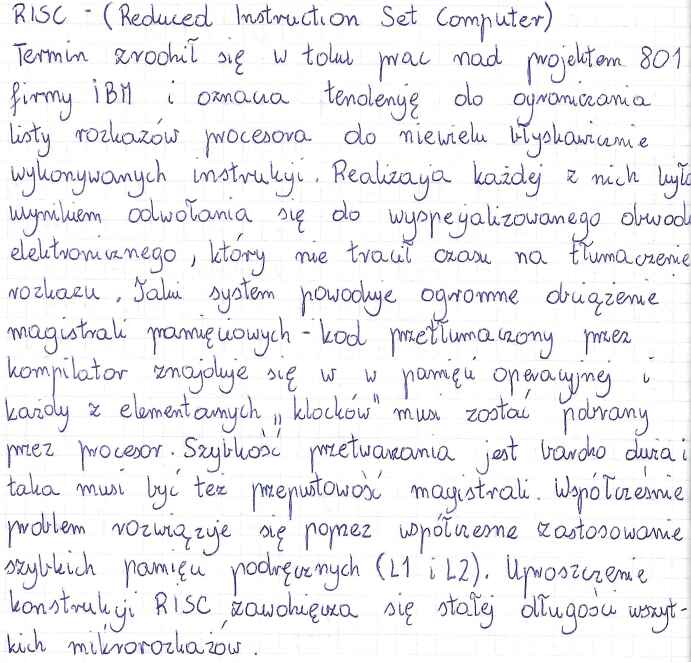 RISC - (Reduced Instruction Set Computer)
Termin zrodził się w toku prac nad projektem 801
firmy IBM i oznacza tendencję do ograniczania
listy rozkazów procesora do niewielu błyskawicznie
wykonywanych instrukcji. Realizacja każdej z nich była
wynikiem odwołania się do wyspecjalizowanego obwodu
elektronicznego, który nie tracił czasu na tłumaczenie
rozkazu. Taki system powoduje ogromne obciążenie
magistrali pamięciowych - kod przetłumaczony przez
kompilator znajduje się w w pamięci operacyjnej i
każdy z elementarnych „klocków" musi zostać pobrany
przez procesor. Szybkość przetwarzania jest bardzo duża i
taka musi być też przepustowość magistrali. Współcześnie
problem rozwiązuje się poprzez współczesne zastosowanie
szybkich pamięci podręcznych (L1 i L2). Uproszczenie
konstrukcji RISC zawdzięcza się stałej długości wszyt-
kich mikrorozkazów.